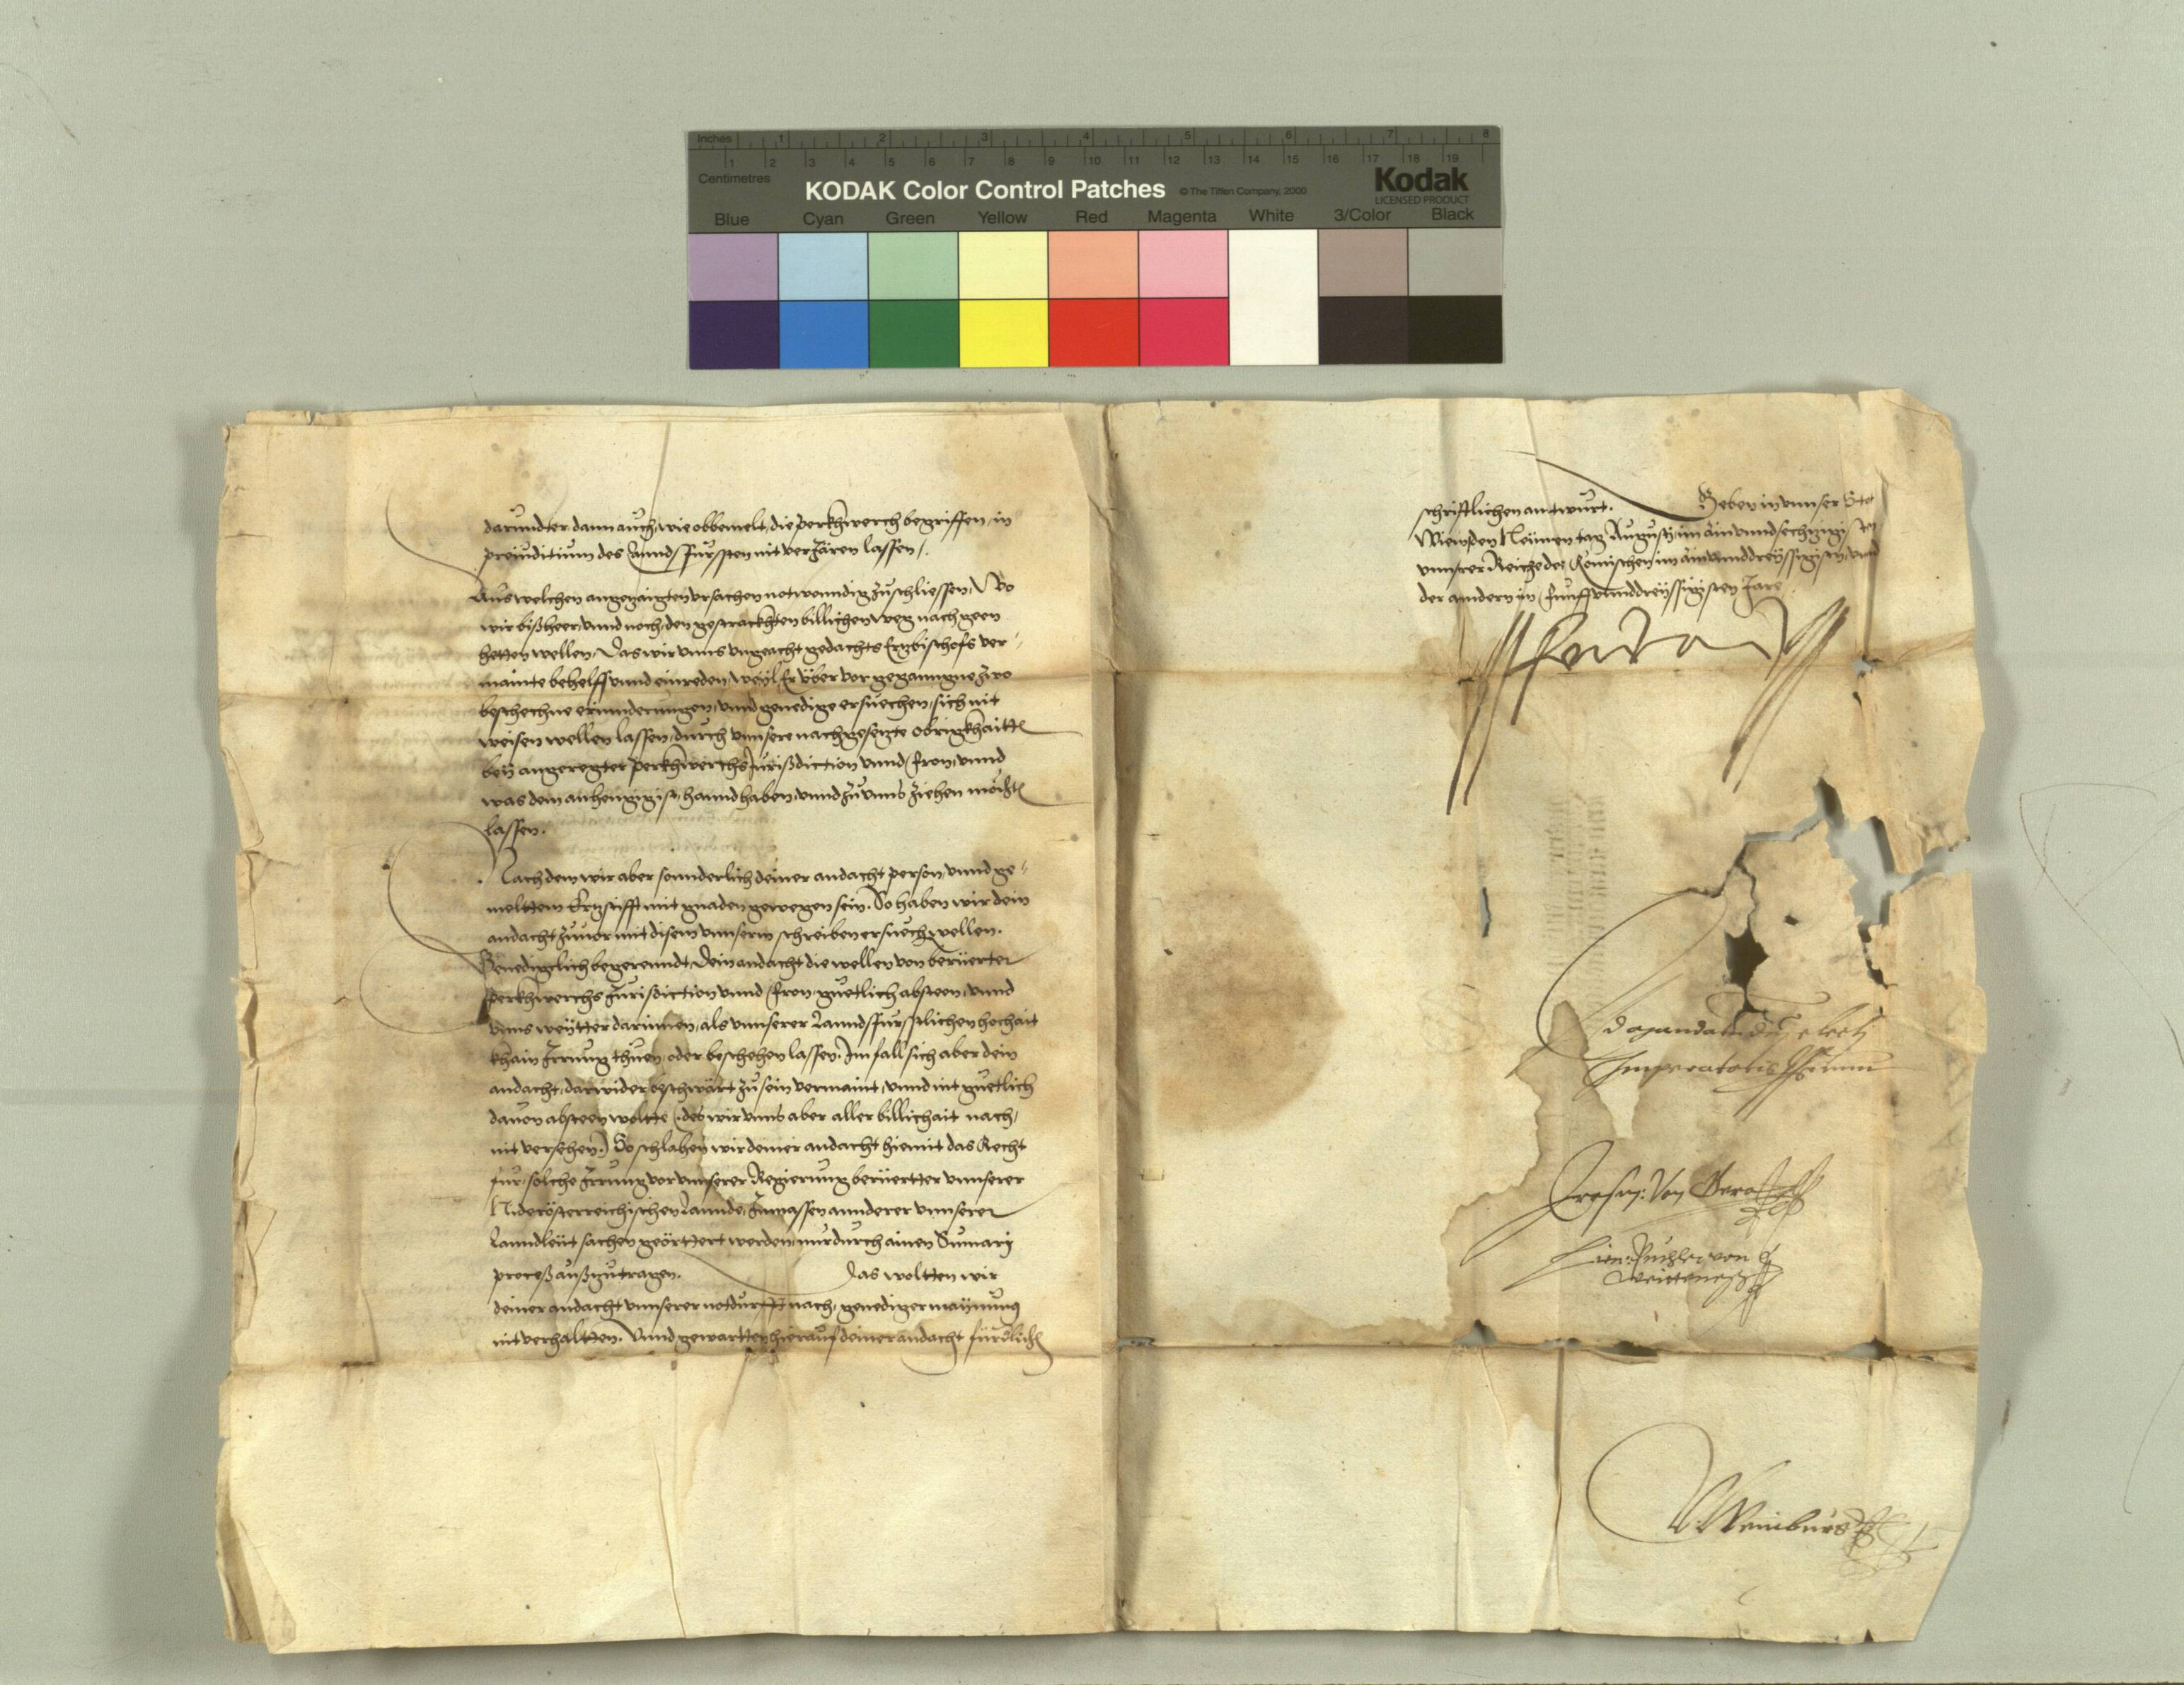 Inches 1 2 3 4 5 6 7 8
1 2 3 4 5 6 7 8 9 10 11 12 13 14 15 16 17 18 19
Centimetres
KODAK Color Control Patches © The Tiffen Company, 2000 Kodak
LICENSED PRODUCT
Blue Cyan Green Yellow Red Magenta White 3/Color Black
darundter dann auch, wie obbemelt, die perkhwerch begriffen, in
preiuditium des Lannd, Fürssten nit verJären lassen.
Aus welchen angezaigten vrsachen notwenndig zuschliessen, Wo
wir bißheer, vnnd noch, den gestrackhten billichen weg nach geen
hetten wellen, Das wir vnns vngeacht gedachts Ertzbischofs ver-
mainte behelff vnnd einreden, weyl Er über vor gegangne zwo
beschechne erinnderungen, vnnd genedige ersuechen, sich nit
weisen wellen lassen, durch vnnsere nachgesetzte obrigkhaitten
bey angeregter perkhwerchs Jurißdiction vnnd Fron, vnnd
was dem anhengig ist, hanndhaben, vnnd zu vnns ziehen möchten
lassen.
Nachdem wir aber sonnderlich deiner andacht person, vnnd ge-
meltem Ertzstifft mit gnaden gewegen sein. So haben wir dein
andacht zuuor mit disem vnnserm schreiben ersuechen wellen.
Genedigelich begerenndt, Dein andacht die wellen von berüerter
Perkhwerchs Jurisdiction vnnd Fron, guetlich absteen, vnnd
vnns weytter darinnen, als vnnserer Lanndsfürstlichen hochait
khain Irrung thuen, oder beschehen lassen. Im fall sich aber dein
andacht, darwider beschwärt zu sein vermaint, vnnd nit guetlich
dauon absteen wolte (des wir vnns aber aller billichait nach,
nit versehen.) So schlahen wir deiner andacht hiemit das Recht
für, solche Irrung vor vnnserer Regierung berüertter vnnserer
Niderösterreichischen Lannde, Inmassen annderer vnnserer
Lanndleüt sachen geörttert werden, nur durch ainen Sumari
proceß außzutragen. Das wolten wir
deiner andacht vnnserer notdurfft nach, genediger maynung
nit verhaltten. Vnnd gewartten hierauf deiner andacht fürderlichen
schrifftlichen antwurt. Geben in vnnser Stat
Wienn den Neünten tag Augusti, im ain vnnd sechzigisten
vnnserer Reiche des Römischen im ainvnnddreyssigisten, vnnd
der andern im Fünffvnnddreyssigisten Jare.
Ferdinand
Ad mandatum domini electi
Imperatoris proprium